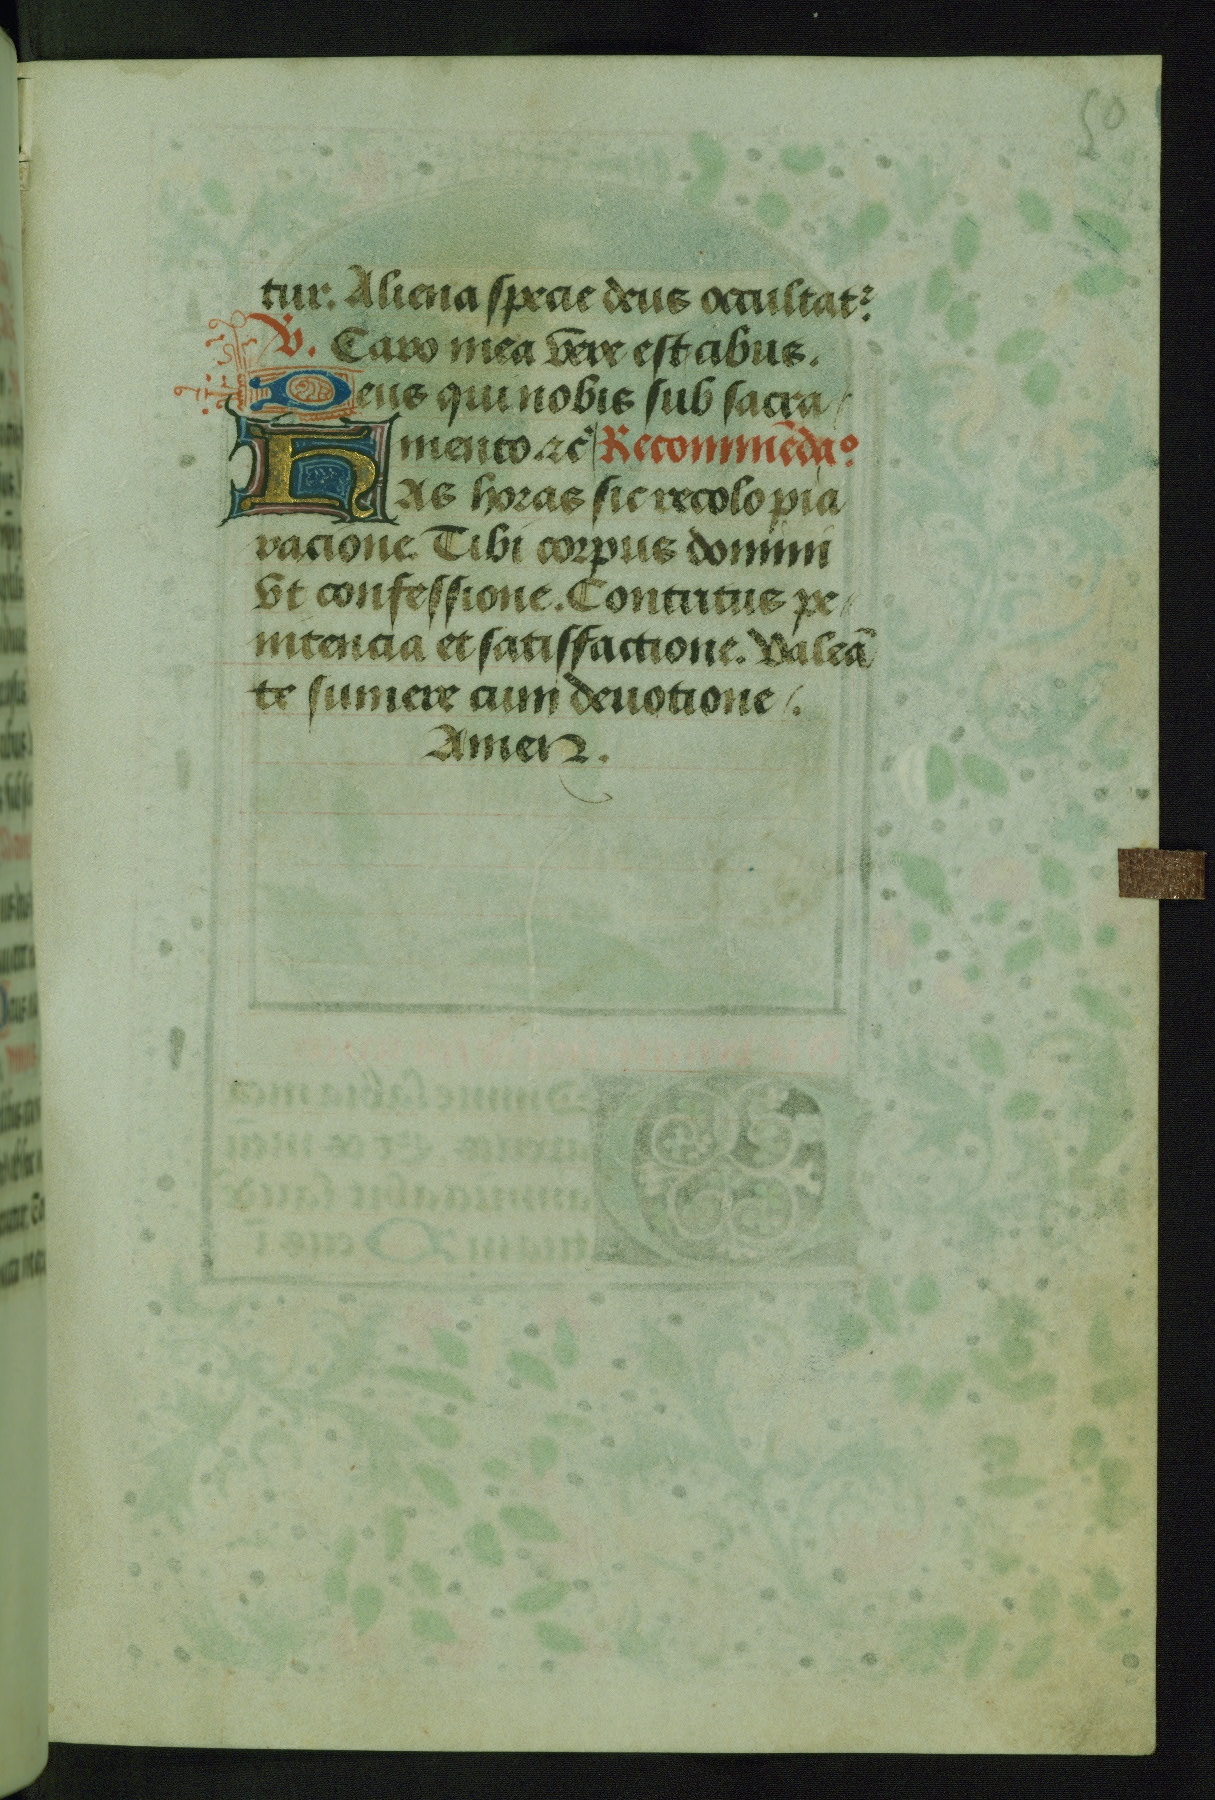 50
tur. Aliena specie deus occultatᷣ
V. Caro mea vere est cibus.
Deus qui nobis sub sacra/
mento ⁊c̃ Recommẽdaᵒ
HAs horas sic recolo pia
racione Tibi corpus domini
Vt confessione. Contritus pe/
nitencia et satisfactione. Valeã
te sumere cum deuotione/.
Amen.